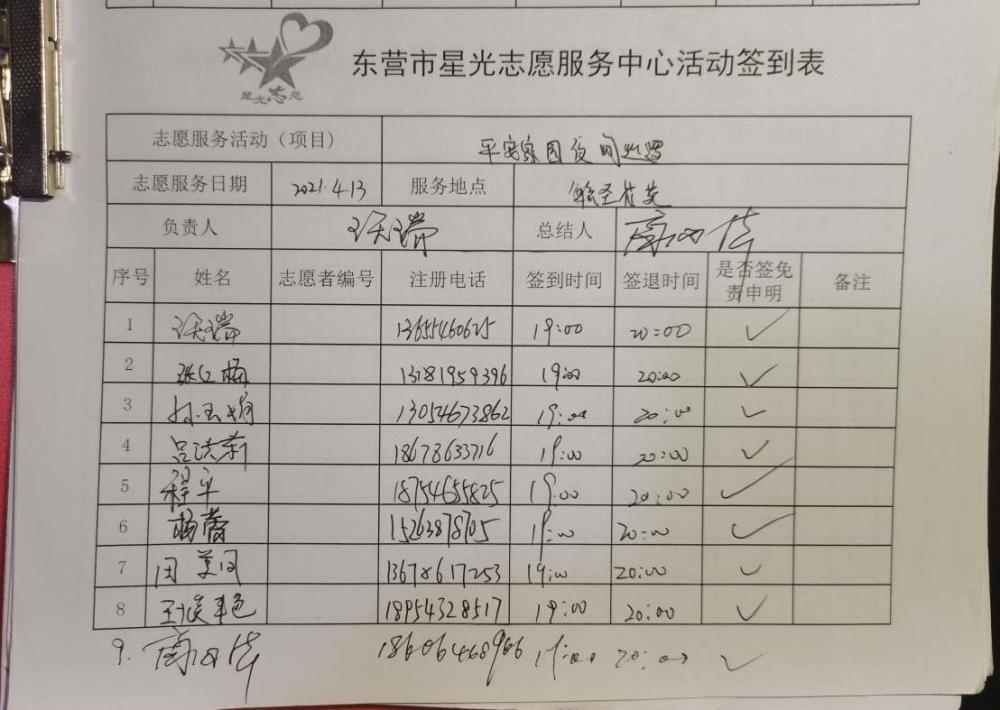 星光志愿
东营市星光志愿服务中心活动签到表
志愿服务活动（项目） 平安家园夜间巡逻
志愿服务日期 2021.4.13 服务地点
负责人 总结人
序号 姓名 志愿者编号 注册电话 签到时间 签退时间 是否签免责申明 备注
1 13655460625 19:00 20:00 ✓
2 13181959396 19:00 20:00 ✓
3 13054673862 19:00 20:00 ✓
4 吕洪新 18678633716 19:00 20:00 ✓
5 程平 18754655825 19:00 20:00 ✓
6 杨蕾 15263878705 19:00 20:00 ✓
7 13678617253 19:00 20:00 ✓
8 18954328517 19:00 20:00 ✓
9. 18606468966 19:00 20:00 ✓